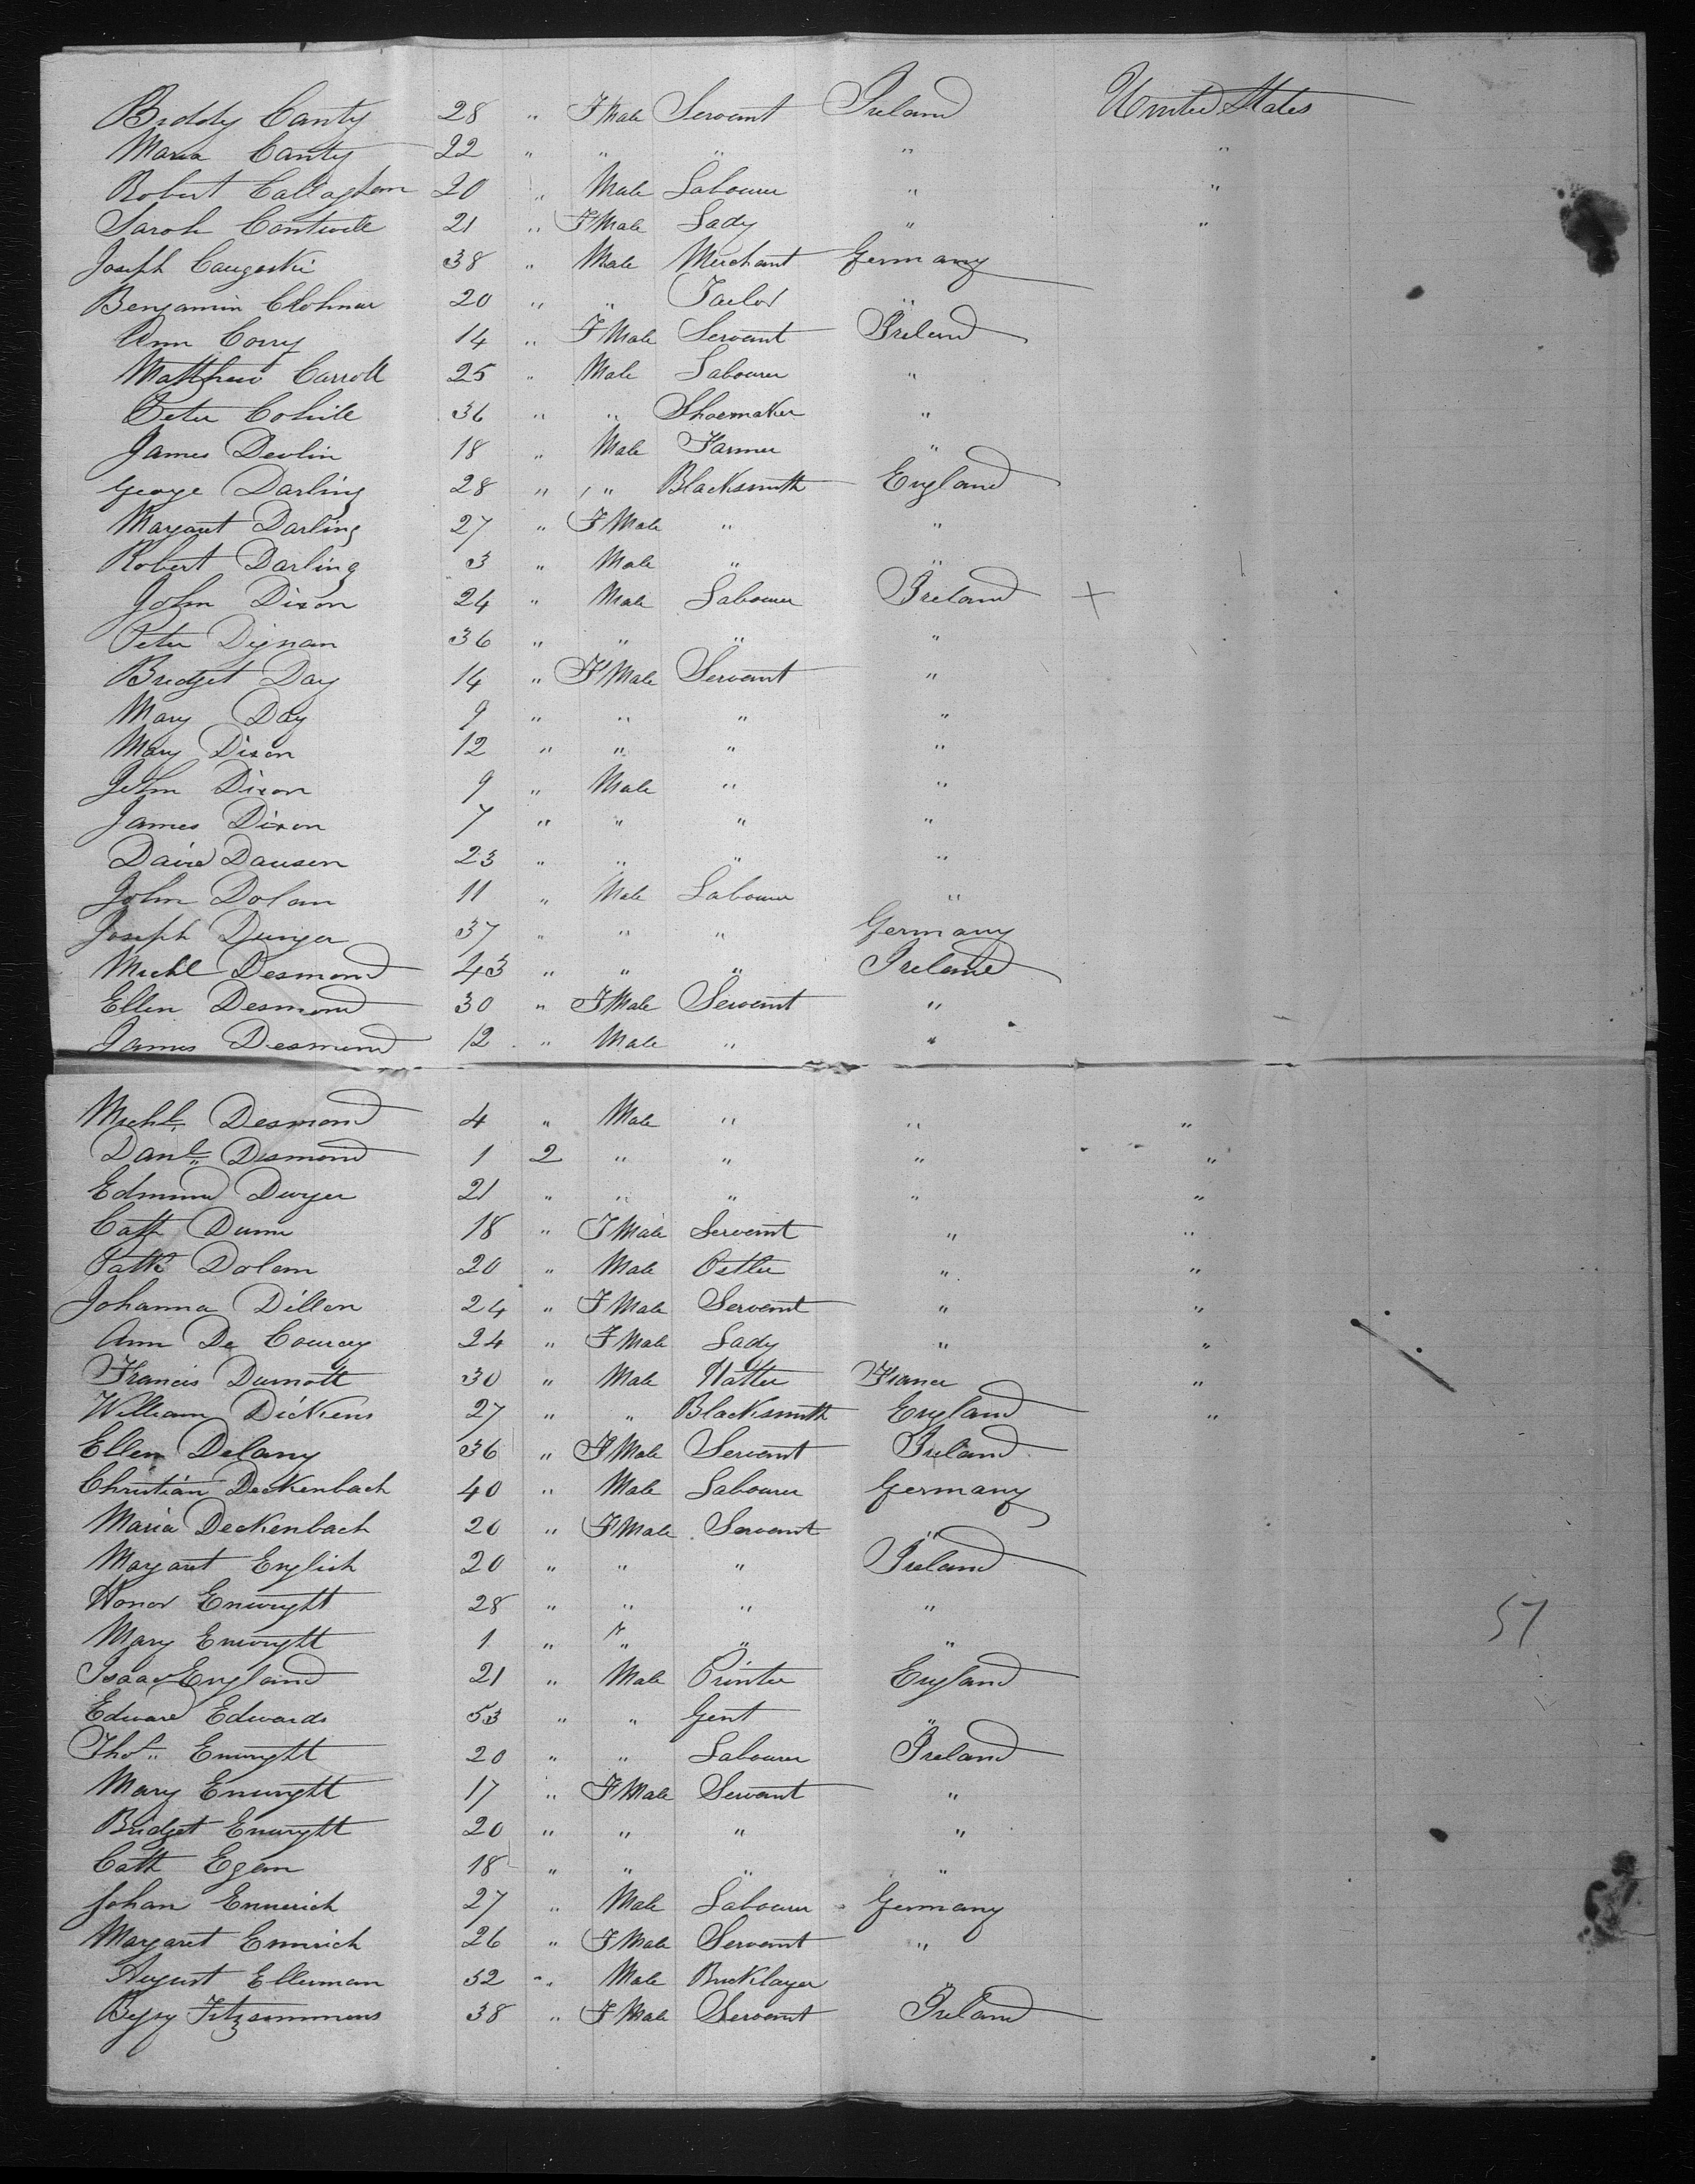 Biddy Canty 28 " F Male Servant Ireland United States
Maria Canty 22 " " " " "
Robert Callaghan 20 " Male Labourer " "
Sarah Cantwell 21 " F Male Lady " "
Joseph 38 " Male Merchant Germany
Benjamin 20 " " Tailor "
Ann Corry 14 " F Male Servant Ireland
Matthew Carroll 25 " Male Labourer "
Peter Cohill 36 " " Shoemaker "
James Devlin 18 " Male Farmer "
George Darling 28 " " Blacksmith England
Margaret Darling 27 " F Male " "
Robert Darling 3 " Male " "
John Dixon 24 " Male Labourer Ireland +
Peter Dignan 36 " " " "
Bridget Day 14 " F Male Servant "
Mary Day 9 " " " "
Mary Dixon 12 " " " "
John Dixon 9 " Male " "
James Dixon 7 " " " "
David Dawson 23 " " " "
John Dolan 11 " Male Labourer "
Joseph 37 " " " Germany
Michl Desmond 43 " " " Ireland
Ellen Desmond 30 " F Male Servant "
James Desmond 12 " Male " "
Michl. Desmond 4 " Male " " "
Danl. Desmond 1 2 " " " "
Edmund Dwyer 21 " " " " "
Cath Dunn 18 " F Male Servant " "
Patk Dolan 20 " Male Ostler " "
Johanna Dillon 24 " F Male Servant " "
Ann De Courcy 24 " F Male Lady " "
Francis Durnott 30 " Male Hatter France "
William Dickens 27 " " Blacksmith England "
Ellen Delany 36 " F Male Servant Ireland
Christian Deckenbach 40 " Male Labourer Germany
Maria Deckenbach 20 " F Male Servant "
Margaret English 20 " " " Ireland
Honor Enwright 28 " " " "
Mary Enwright 1 " " " "
Isaac England 21 " Male Printer England
Edward Edwards 53 " " Gent "
Thos. Enwright 20 " " Labourer Ireland
Mary Enwright 17 " F Male Servant "
Bridget Enwright 20 " " " "
Cath Egan 18 " " " "
Johan Emmerich 27 " Male Labourer Germany
Margaret Emmrich 26 " F Male Servant "
August Ellerman 52 " Male Bricklayer "
Bessy Fitzsimmons 38 " F Male Servant Ireland
57